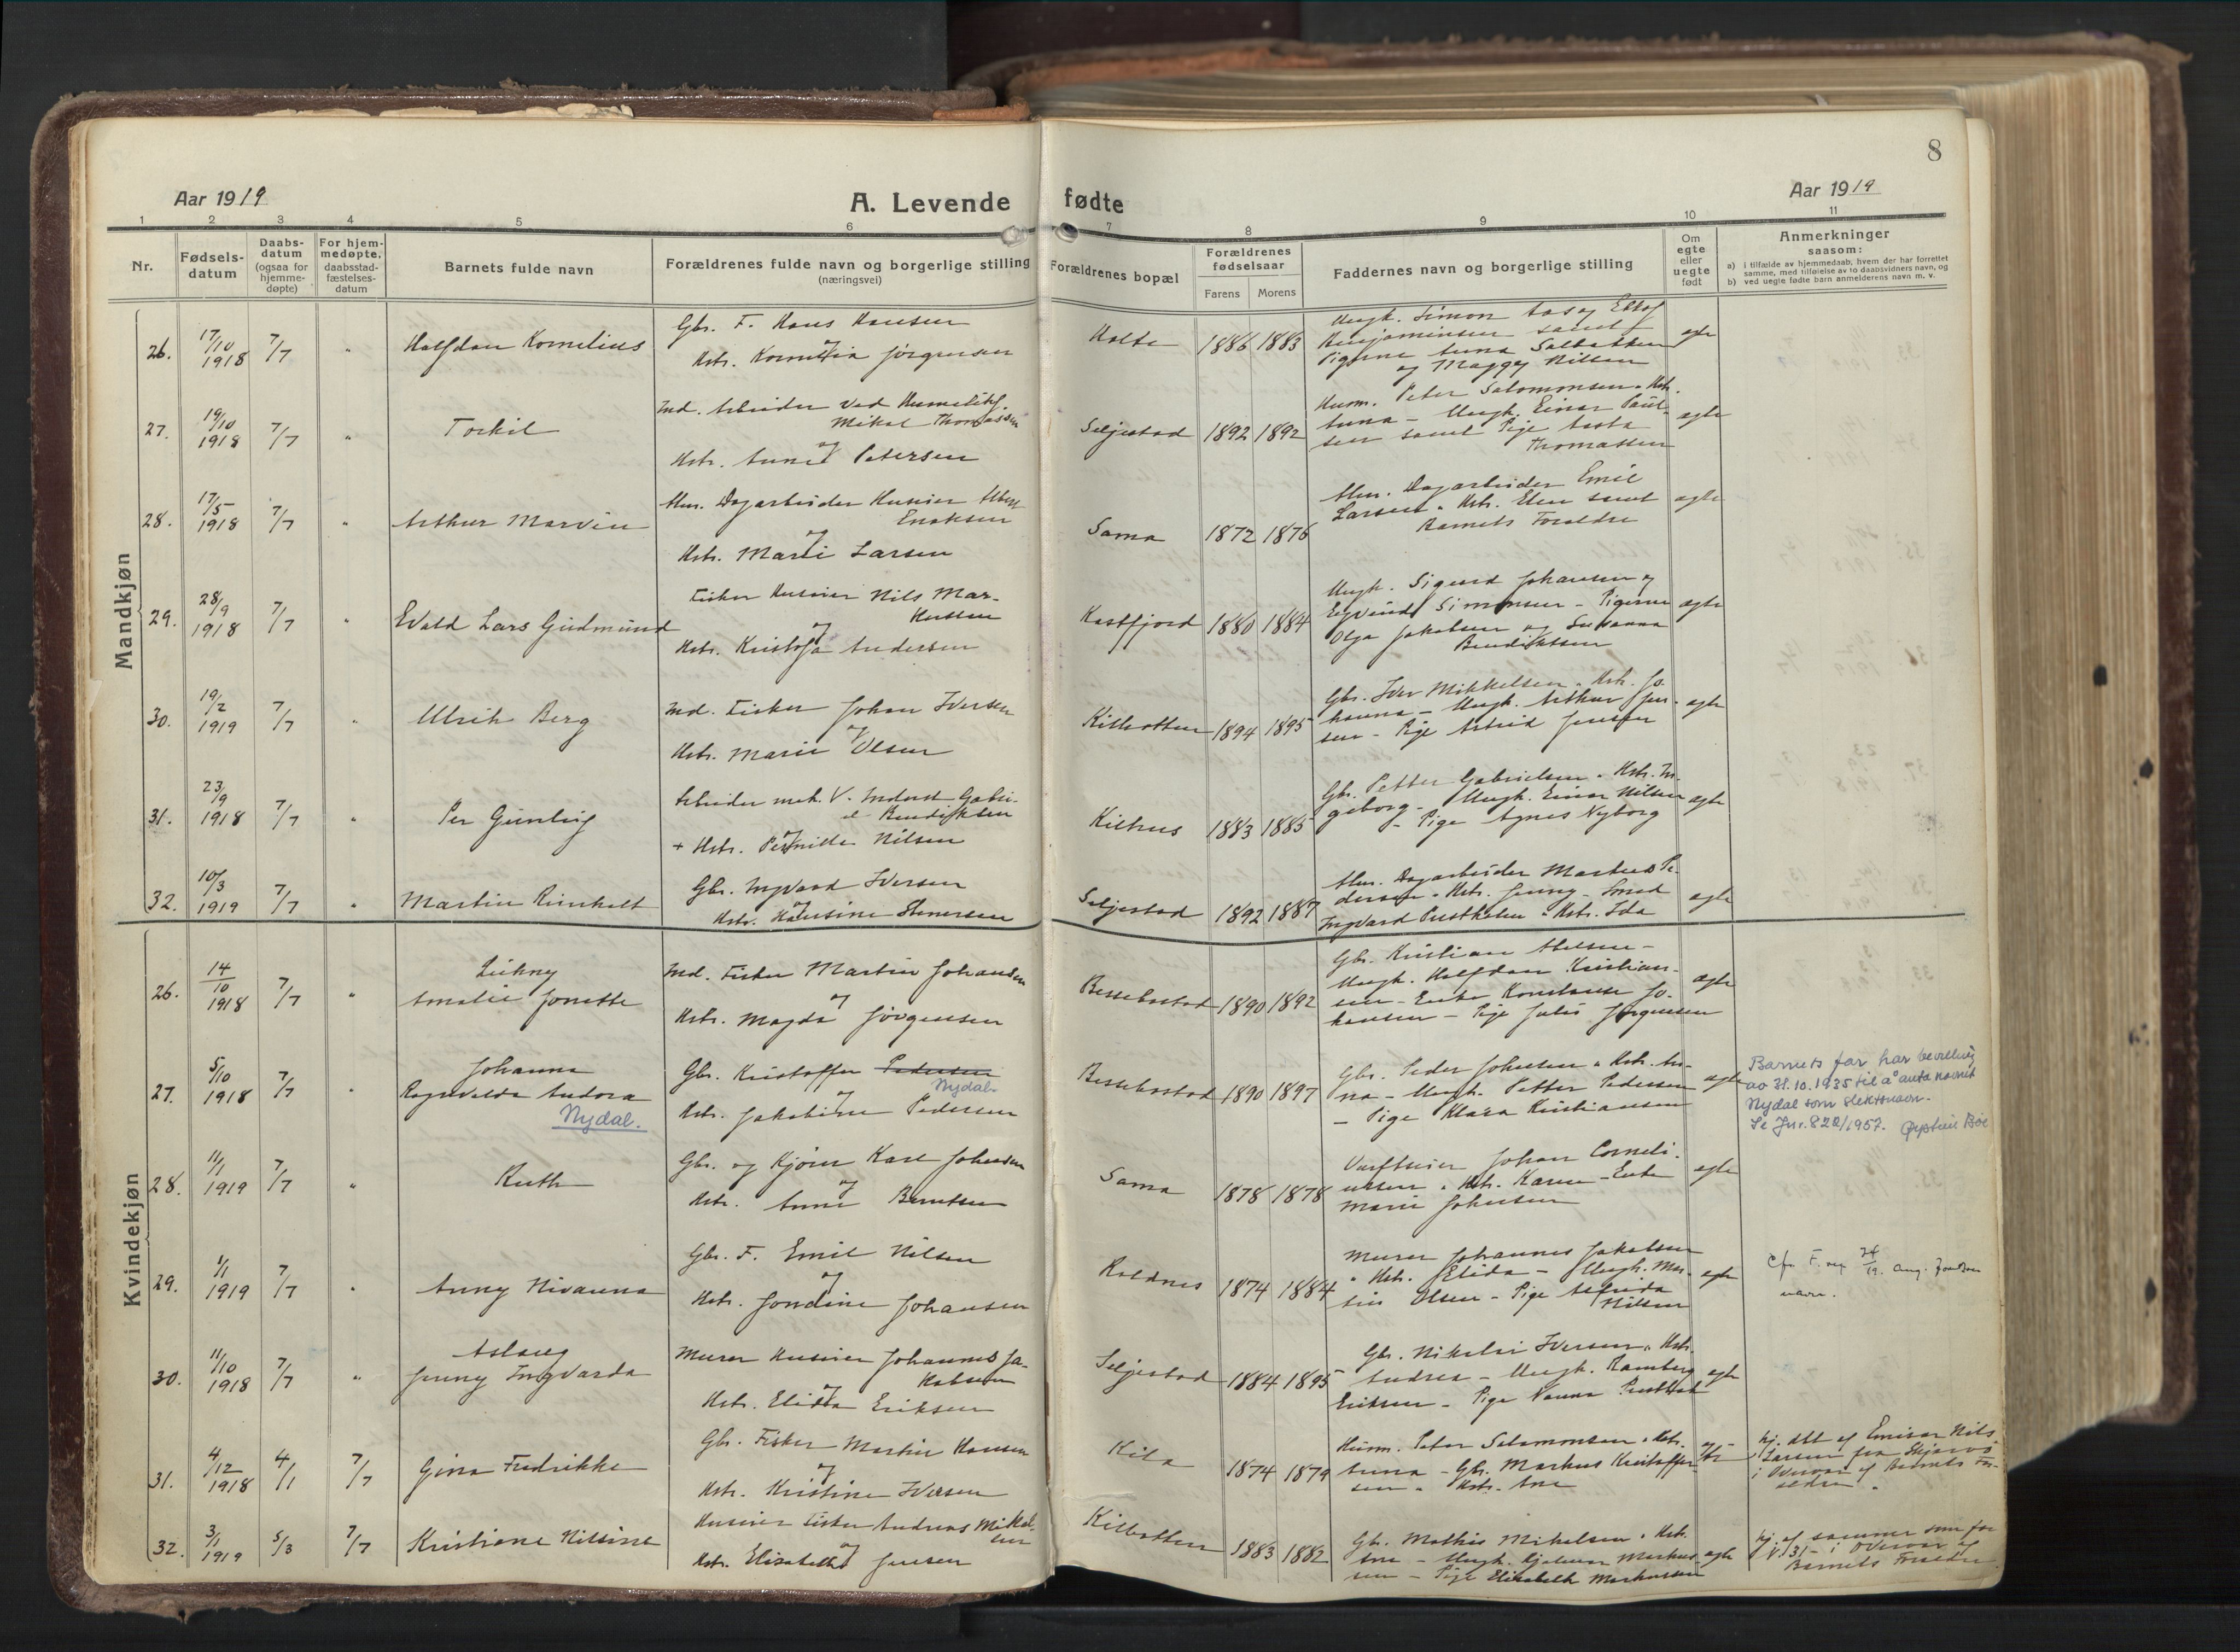 8
Aar 1919
A. Levende
fødte
Aar 1919
1 2 3 4 5 6 7 8 9 10 11
Nr.
Fødsels-
datum
Daabs-
datum
(ogsaa for
hjemme-
døpte)
For hjem-
medøpte,
daabsstad-
fæstelses-
datum
Barnets fulde navn
Forældrenes fulde navn og borgerlige stilling
(næringsvei)
Forældrenes bopæl
Forældrenes
fødselsaar
Farens Morens
Faddernes navn og borgerlige stilling
Om
egte
eller
uegte
født
Anmerkninger
saasom:
a) i tilfælde av hjemmedaab, hvem der har forrettet
samme, med tilføielse av to daabsvidners navn, og
b) ved uegte fødte barn anmelderens navn m. v.
Mandkjøn
26. 17/10 1918 7/7 " Halfdan Kornelius
Gbr. F. Hans Hansen
og
Hstr. Kornelia Jörgensen
1886 1883
Ungk. Simon Aas og
Benjaminsen samt
Pigerne Anna
og Maggy Nilsen
egte
27. 19/10 1918 7/7 " Torkil
Ind. Arbeider ved
Mikal Thomassen
og
Hstr. Anna Petersen
Seljestad 1892 1892
Husm. Peter Salomonsen " Hstr.
Anna - Ungk. Einar Paul-
sen samt Pige Asta
Thomassen
egte
28. 17/5 1918 7/7 " Arthur Marvin
Alm. Dagarbeider Huseier Albert
Enoksen
og
Hstr. Marie Larsen
Sama 1872 1876
Alm. Dagarbeider Emil
Larsen " Hstr. Elen samt
Barnets Forældre
egte
29. 28/9 1918 7/7 " Evald Lars Gudmund
Fisker Huseier Nils Mar-
kussen
og
Hstr. Kristofa Andersen
Kasfjord 1880 1884
Ungk. Sigurd Johansen og
Eyvind Simonsen - Pigerne
Olga Jakobsen og Susanna
Bendiktsen
egte
30. 19/2 1919 7/7 " Ulrik Berg
Ind. Fisker Johan Iversen
og
Hstr. Marie Olsen
Kilbotten 1894 1895
Gbr. Iver Mikkelsen " Hstr. Jo-
hanna - Ungk. Arthur Jen-
sen - Pige Astrid Jensen
egte
31. 23/9 1918 7/7 " Per Gunleig
Arbeider mek. V. Indust. Gabri-
el Bendiksen
og
+ Hstr. Pernille Nilsen
Kilhus 1883 1885
Gbr. Petter Gabrielsen " Hstr. In-
geborg - Ungk. Einar Nilsen
- Pige Agnes Nyborg
egte
32. 10/3 1919 7/7 " Martin Reinholt
Gbr. Ingvard Iversen
og
Hstr. Hansine Stenersen
Seljestad 1892 1887
Alm. Dagarbeider Martinus Pe-
dersen " Hstr. Jenny - Smed
Ingvard " Hstr. Ida
egte
Kvindekjøn
26. 14/10 1918 7/7 " Likny
Amalie Jonette
Ind. Fisker Martin Johansen
og
Hstr. Magda Jörgensen
Bessebostad 1890 1892
Gbr. Kristian Abelsen -
Ungk. Halfdan Kristian-
sen - Enke Konstanse Jo-
hansen - Pige Julie Jörgensen
egte
27. 5/10 1918 7/7 " Johanna
Ragnvalda Andora
Nydal.
Gbr. Kristoffer Pedersen
Nydal.
og
Hstr. Jakobine Pedersen
Bessebostad 1890 1897
Gbr. Peder Johnsen " Hstr. An-
na - Ungk. Petter Pedersen
- Pige Klara Kristiansen
egte
Barnets far har bevilling
av 31.10.1935 til å anta navnet
Nydal som slektsnavn.
Se Jnr. 828/1957. Øystein Böe
28. 11/1 1919 7/7 " Ruth
Gbr. og Kjører Karl Johnsen
og
Hstr. Anne Berntsen
Sama 1878 1878
Johan Corneli-
ussen " Hstr. Karen - Enke
Marie Johnsen
egte
29. 1/1 1919 7/7 " Anny Nivanna
Gbr. F. Emil Nilsen
og
Hstr. Jondine Johansen
Koldnes 1874 1884
Murer Johannes Jakobsen
" Hstr. Elida - Ungk. Mar-
tin Olsen - Pige Alfrida
Nilsen
egte
cfr. F. reg. 24/19. ang.
navn.
30. 11/10 1918 7/7 " Aslaug
Jenny Ingvarda
Murer Huseier Johannes Ja-
kobsen
og
Hstr. Elida Eriksen
Seljestad 1884 1895
Gbr. Nikolai Iversen " Hstr.
Andrea - Ungk. Ramberg
Eriksen - Pige Nanna
egte
31. 4/12 1918 4/1 7/7 Gina Fredrikke
Gbr. Fisker Martin Hansen
og
Hstr. Kristine Iversen
Kila 1874 1879
Husm. Peter Salomonsen " Hstr.
Anna - Gbr. Markus Kristoffer-
sen " Hstr. Ane
egte
hj. dbt af Emisær Nils
Larsen fra Skjærvø
i Overvær af Barnets For-
ældre.
32. 3/1 1919 5/3 7/7 Kristiane Nilsine
Huseier Fisker Andreas Mikal-
sen
og
Hstr. Elisabeth Jensen
Kilbotten 1883 1882
Gbr. Mathis Mikelsen " Hstr.
Ane - Ungk. Hjalmar Markus-
sen - Pige Elisabeth Markussen
egte
hj. af samme som for
№ 31 - i Overvær af
Barnets Forældre